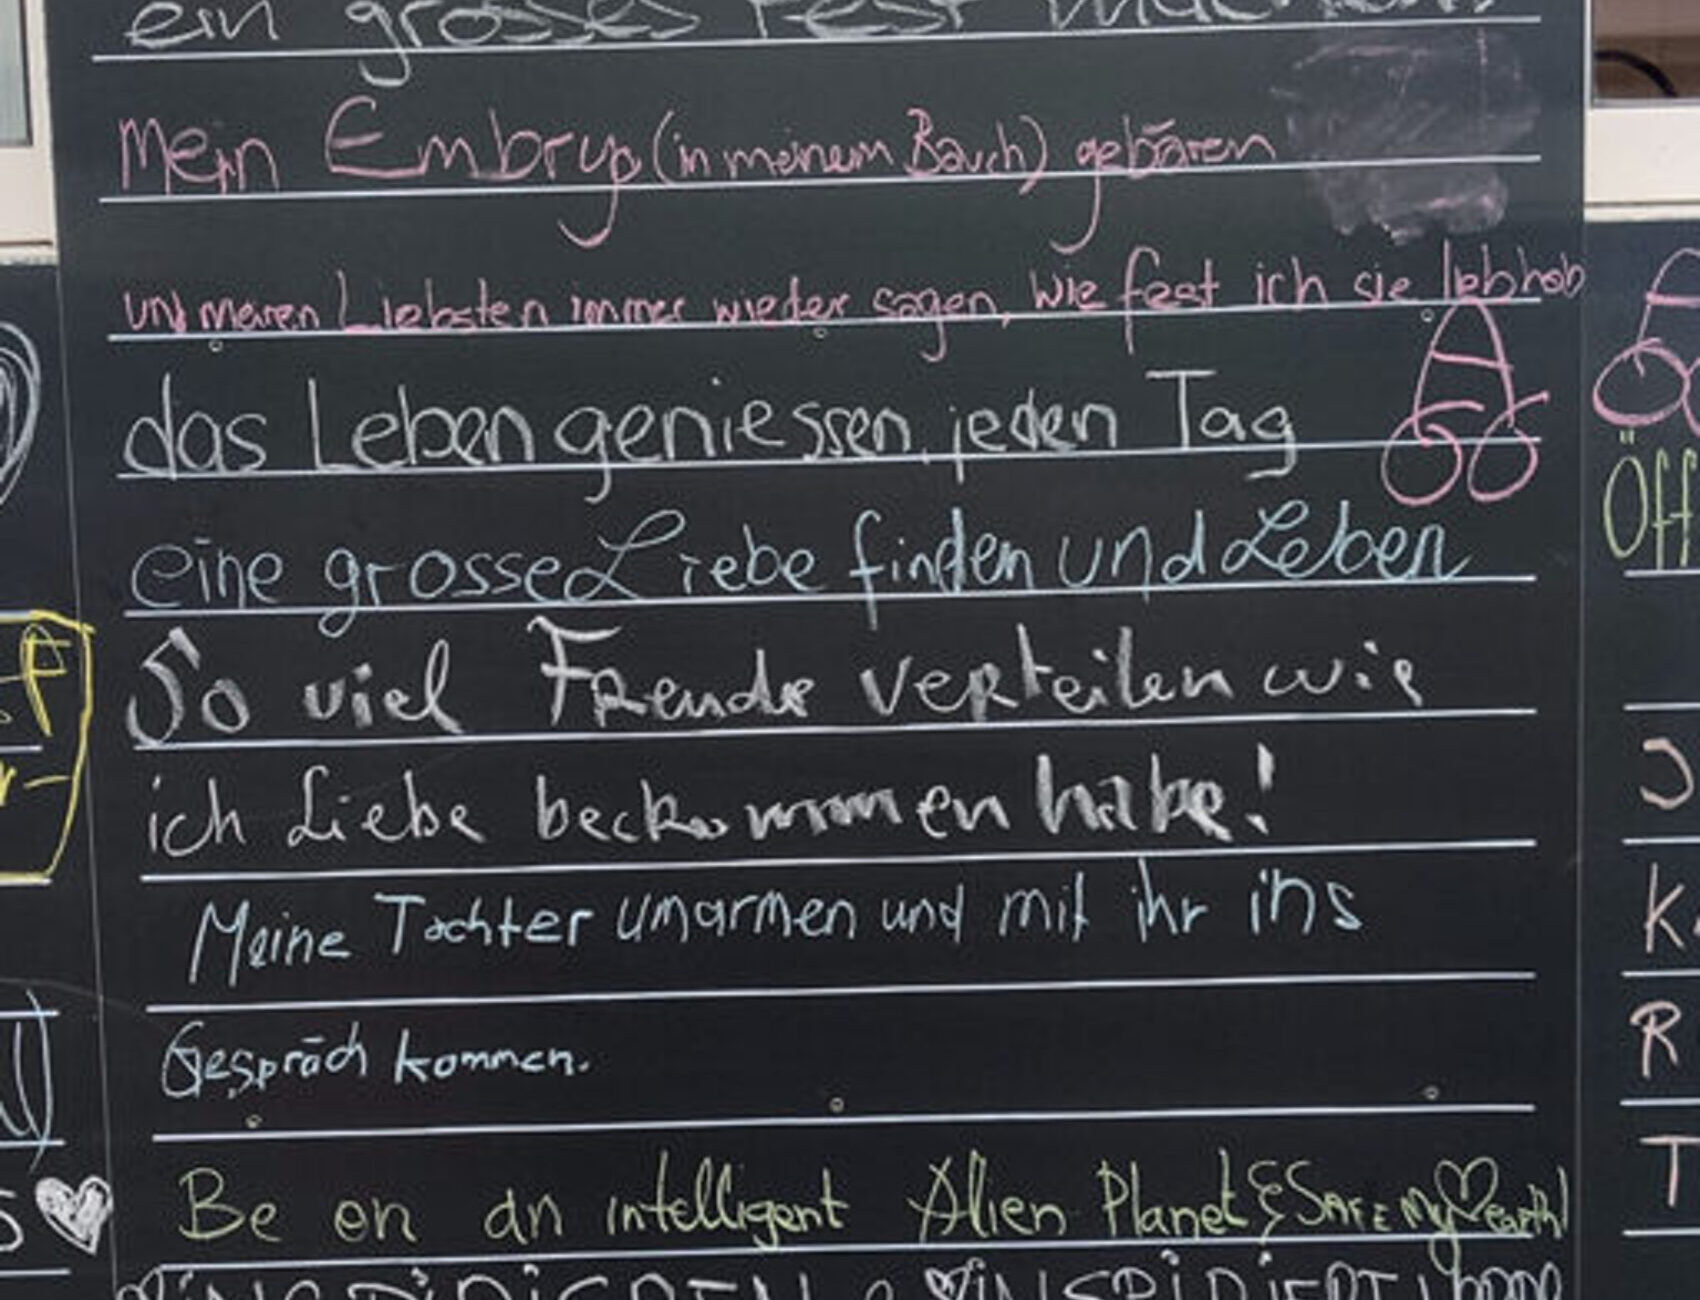 ein grosses Fest machen
Mein Embryo (in meinem Bauch) gebären
und meinen Liebsten immer wieder sagen, wie fest ich sie liebhab
das Leben geniessen, jeden Tag
eine grosse Liebe finden und Leben
So viel Freude verteilen wie
ich Liebe beckommen habe!
Meine Tochter umarmen und mit ihr ins
Gespräch kommen.
Be on an intelligent Alien Planet & SAFE My earth!
Öff
J
K
R
T